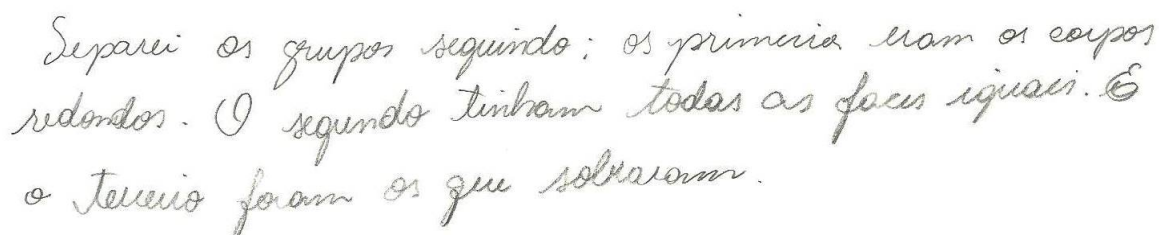 Separei os grupos seguindo: os primeiria eram os corpos
redondos. O segundo tinham todas as faces iguais. E
o terceiro foram os que sobraram.